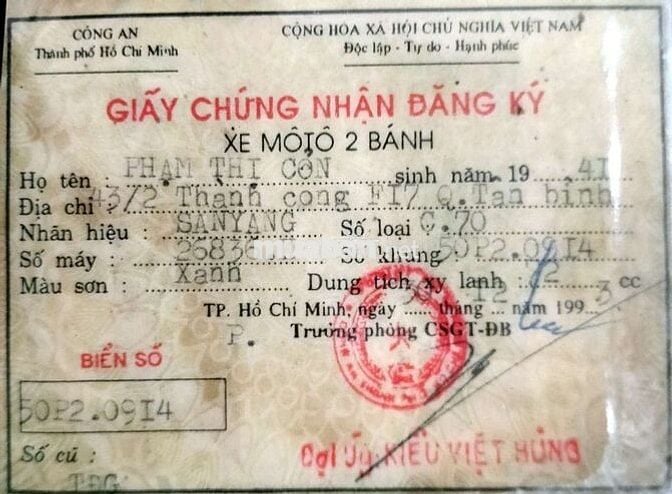 CÔNG AN
Thành phố Hồ Chí Minh
CỘNG HÒA XÃ HỘI CHỦ NGHĨA VIỆT NAM
Độc lập - Tự do - Hạnh phúc
GIẤY CHỨNG NHẬN ĐĂNG KÝ
XE MÔTÔ 2 BÁNH
Họ tên : PHẠM THỊ CÔN sinh năm 19 41
Địa chỉ : 43/2 Thanh cong F17 Q.Tan binh
Nhãn hiệu : SANYANG Số loại C.70
Số máy : Số khung : 50P2.09I4
Màu sơn : Xanh Dung tích xy lanh : cc
TP. Hồ Chí Minh, ngày 30 tháng 12 năm 1993
P. Trưởng phòng CSGT-ĐB
BIỂN SỐ
50P2.09I4
Số cũ :
TĐG
Đại Úy KIỀU VIỆT HÙNG